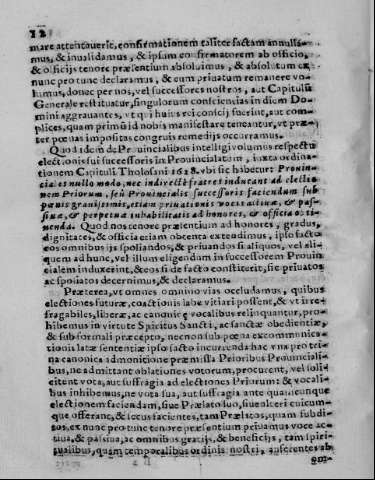 12
mare attentauerit, confirmationem taliter factam annullamus,
mus, & inualidamus, & ipsum confirmatorem ab officio,
& officijs tenore præsentium absoluimus, & absolutum ex
nunc pro tunc declaramus, & eum priuatum remanere volumus,
lumus, donec per nos, vel successores nostros, aut Capitulũ
Generale restituatur, singulorum consciencias in diem Domini
mini aggrauantes, vt qui huius rei conscij fuerint, aut complices,
plices, quam primùm id nobis manifestare teneantur, vt præter
ter pœnas impositas congruis remedijs occurramus.
Quod idem de Prouincialibus intelligi volumus respectu
electionis sui successoris in Prouincialatum, iuxta ordinationem
tionem Capituli Tholosani 1628. vbi sic habetur: Prouincia
ciales nullo modo, nec indirectè fratres inducant ad electionem
nem Priorum, seu Prouincialis successoris faciendum sub
pœnis grauissimis, etiam priuationis vocis actiuæ, & passiuæ,
siuæ, & perpetuæ inhabilitatis ad honores, & officia obtinenda.
nenda. Quod nos tenore præsentium ad honores, gradus,
dignitates, & officia etiam obtenta extendimus, ipso facto
eos omnibus ijs spoliandos, & priuandos si aliquos, vel aliquem
quem ad hunc, vel illum eligendum in successorem Prouincialem
cialem induxerint, & eos si de facto constiterit, sic priuatos
ac spoliatos decernimus, & declaramus.
Præterea, vt omnes omnino vias occludamus, quibus
electiones futuræ, coactionis labe vitiari possent, & vt irrefragabiles,
fragabiles, liberæ, ac canonicè vocalibus relinquantur, prohibemus
hibemus in virtute Spiritus Sancti, ac sanctæ obedientiæ,
& sub formali præcepto, necnon sub pœna excommunicationis
tionis latæ sententiæ ipso facto incurrenda hac vna pro trina
na canonica admonitione præmissa Prioribus Prouincialibus,
bus, ne admittant oblationes votorum, procurent, vel solicitent
citent vota, aut suffragia ad electiones Priorum: & vocalibus
bus inhibemus, ne vota sua, aut suffragia ante quamcunque
electionem faciendam, siue Prælato suo, siue alteri cuicumque
que offerant, & secus facientes, tam Prælatos, quam subditos,
tos, ex nunc pro tunc tenore præsentium priuamus voce actiua,
tiua, & passiua, ac omnibus gratijs, & beneficijs, tam spiritualibus,
tualibus, quam temporalibus ordinis nostri, auferentes ab
om-